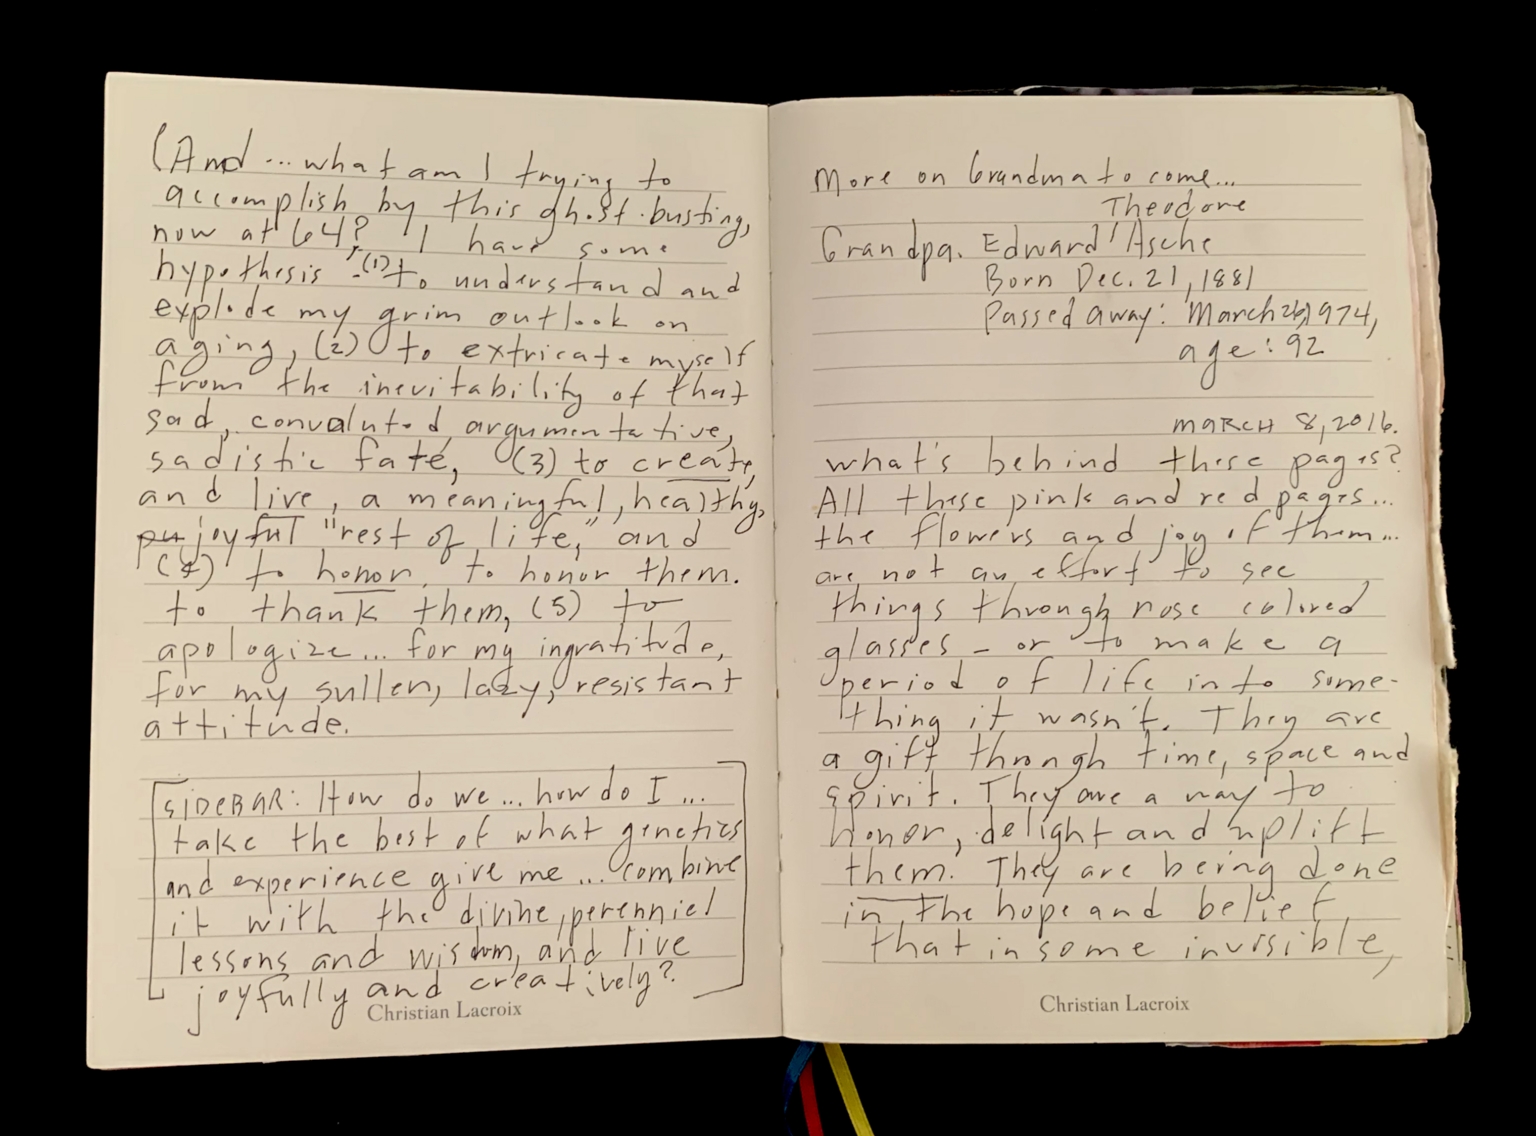 (And ... what am I trying to
accomplish by this ghost-busting,
now at 64? I have some
hypothesis: (1) to understand and
explode my grim outlook on
aging, (2) to extricate myself
from the inevitability of that
sad, convoluted, argumentative,
sadistic fate, (3) to create,
and live, a meaningful, healthy,
joyful "rest of life," and
(4) to honor, to honor them.
to thank them, (5) to
apologize... for my ingratitude,
for my sullen, lazy, resistant
attitude.
[SIDEBAR: How do we ... how do I ...
take the best of what genetics
and experience give me ... combine
it with the divine, perenniel
lessons and wisdom, and live
joyfully and creatively?]
Christian Lacroix
More on Grandma to come...
Theodore
Grandpa. Edward Asche
Born Dec. 21, 1881
Passed away: March 26, 1974,
age: 92
MARCH 8, 2016.
what's behind these pages?
All these pink and red pages...
the flowers and joy of them...
are not an effort to see
things through rose colored
glasses - or to make a
period of life into some-
thing it wasn't. They are
a gift through time, space and
spirit. They are a way to
honor, delight and uplift
them. They are being done
in the hope and belief,
that in some invisible,
Christian Lacroix